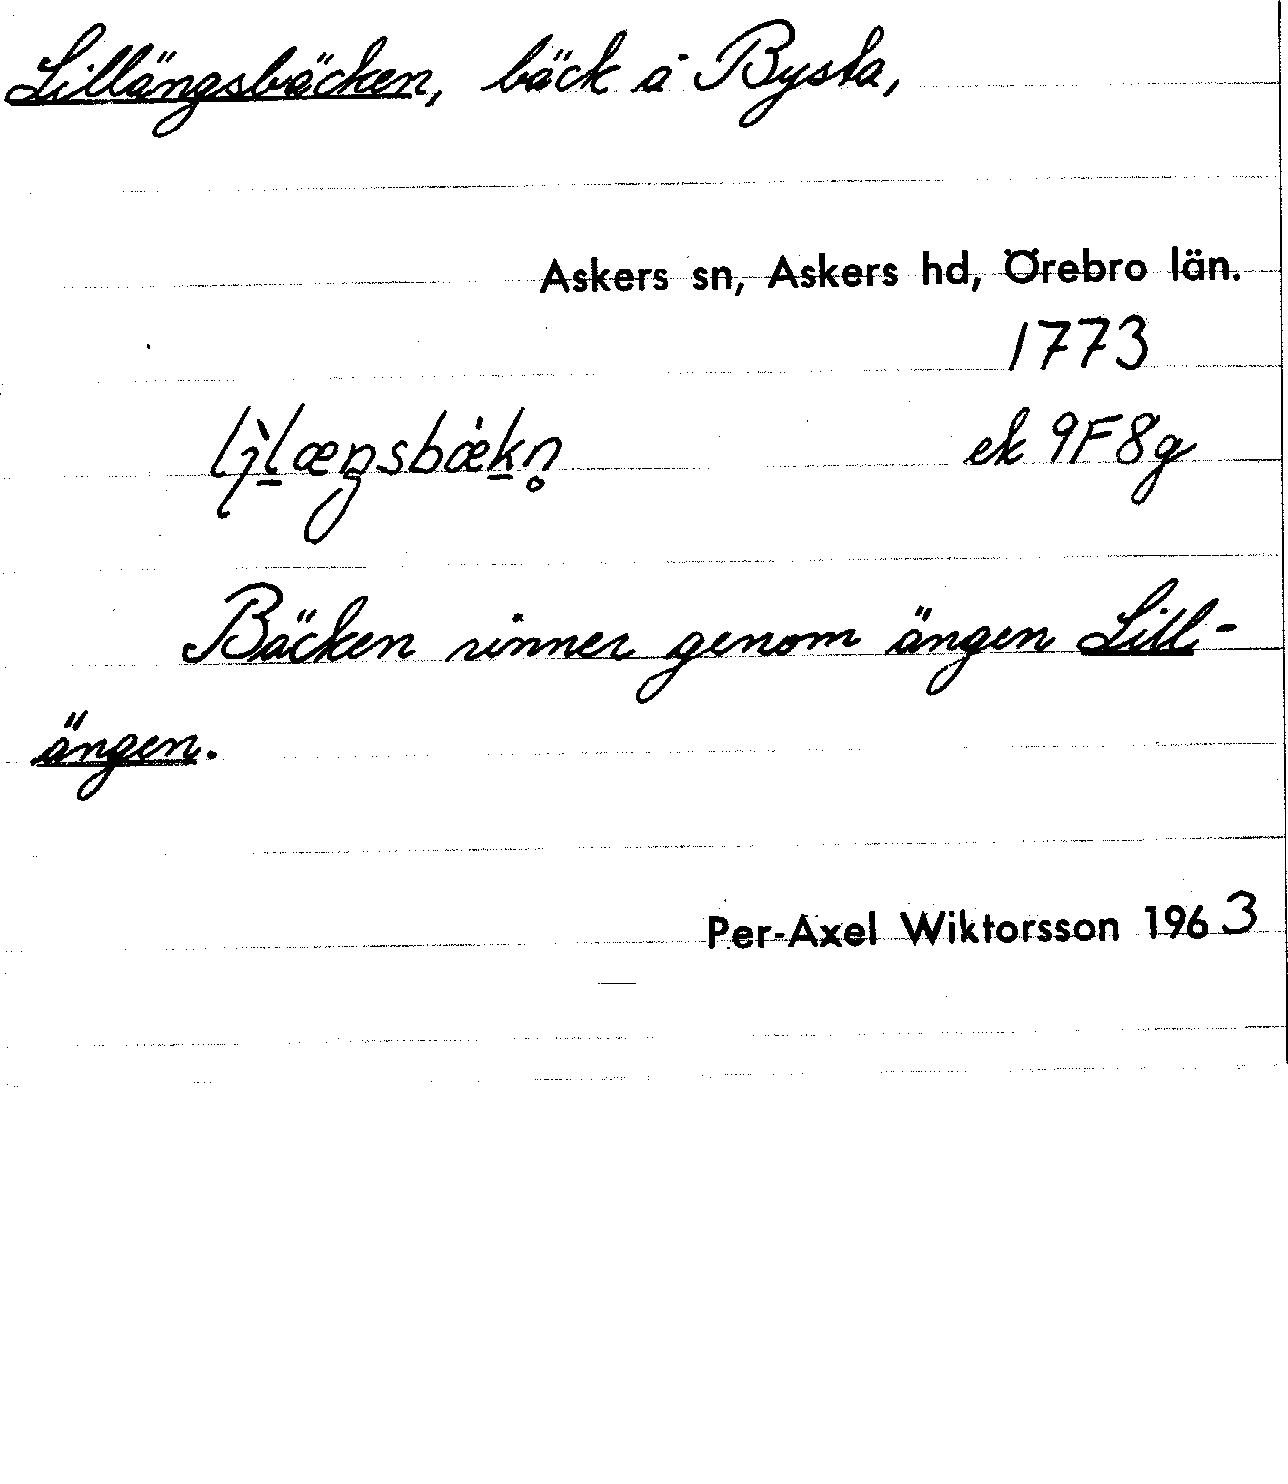 Lillängsbäcken, bäck å Bysta,
Askers sn, Askers hd, Örebro län.
1773
ek 9F8g
Bäcken rinner genom ängen Lill-
ängen.
Per-Axel Wiktorsson 1963